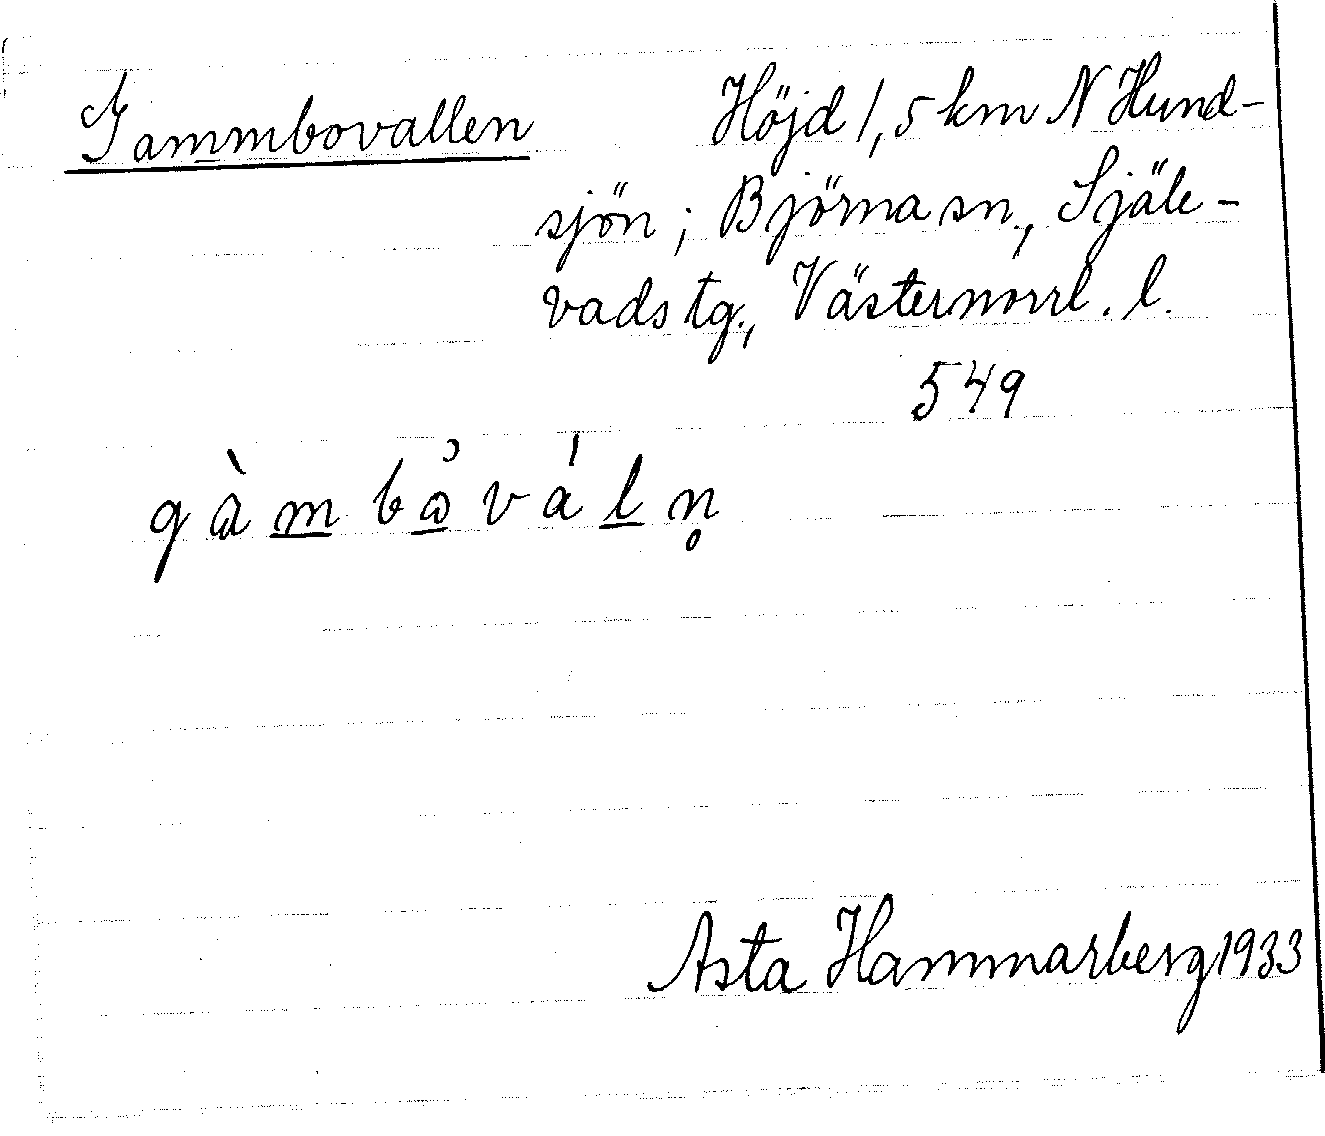 Gammbovallen Höjd 1,5 km N Hund-
sjön; Björna sn, Själe-
vads tg., Västernorrl. l.
549
gàmbåváln̥
Asta Hammarberg 1933